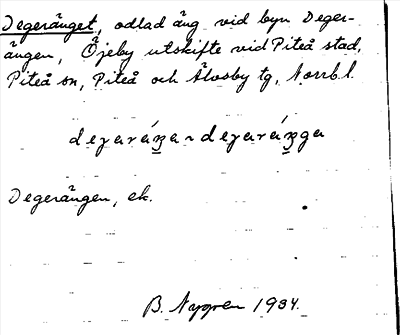 Degeränget, odlad äng vid byn Deger-
ängen, Öjeby utskifte vid Piteå stad,
Piteå sn, Piteå och Älvsby tg, Norrb. l.
degaráŋa ~ degaráŋga
Degerängen, ek.
B. Nygren 1934.